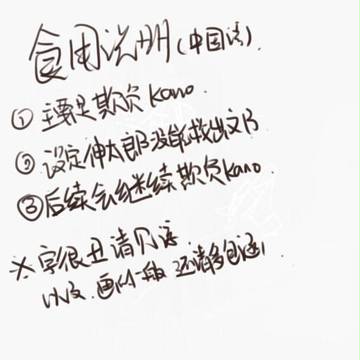 食用说明(中国语).
① 主要是欺负Kano.
② 设定伸太郎没能救出文乃
③ 后续会继续欺负Kano.
※字很丑请见谅
以及.画的一般 还请多包涵!